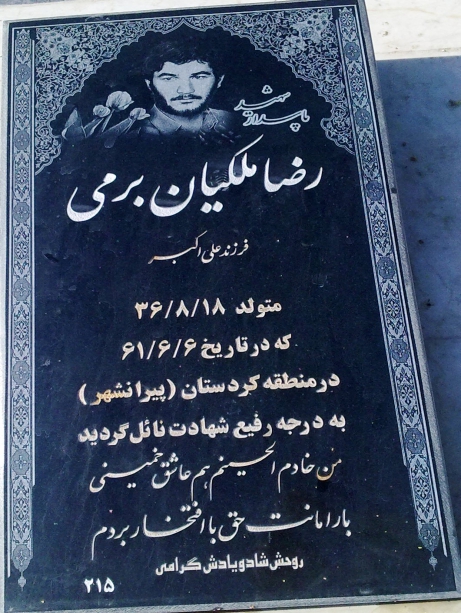 شهید
پاسدار
رضا ملکیان برمی
فرزند علی اکبر
متولد ۳۶/۸/۱۸
که در تاریخ ۶۱/۶/۶
در منطقه کردستان (پیرانشهر)
به درجه رفیع شهادت نائل گردید
من خادم الحسینم هم عاشق خمینی
بار امانت حق با افتخار بردم
روحش شاد و یادش گرامی
۲۱۵